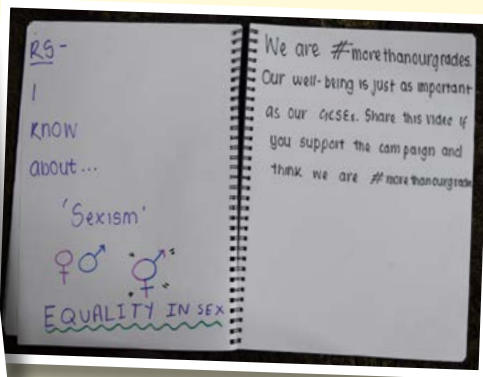 RS-
I
KNOW
about...
'Sexism'
EQUALITY IN SEX
We are #morethanourgrades.
Our well-being is just as important
as our GCSEs. Share this video if
you support the campaign and
think we are #morethanourgrades